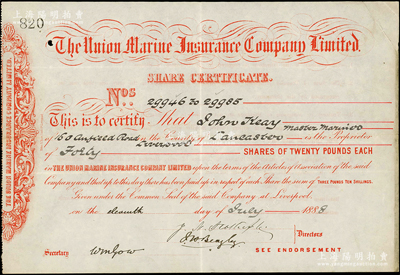 820
The Union Marine Insurance Company Limited.
SHARE CERTIFICATE.
Nos. 29946 to 29985
This is to certify That John Keay Master Mariner
of 60 Anfield Road Liverpool in the County of Lancaster is the Proprietor
of Forty SHARES OF TWENTY POUNDS EACH
IN THE UNION MARINE INSURANCE COMPANY LIMITED upon the terms of the Articles of Association of the said
Company and that up to this day there has been paid up in respect of each Share the sum of THREE POUNDS TEN SHILLINGS.
Given under the Common Seal of the said Company at Liverpool.
on the eleventh day of July 1888
Directors
Secretary Wm Gow
SEE ENDORSEMENT
THE UNION MARINE INSURANCE COMPANY LIMITED.